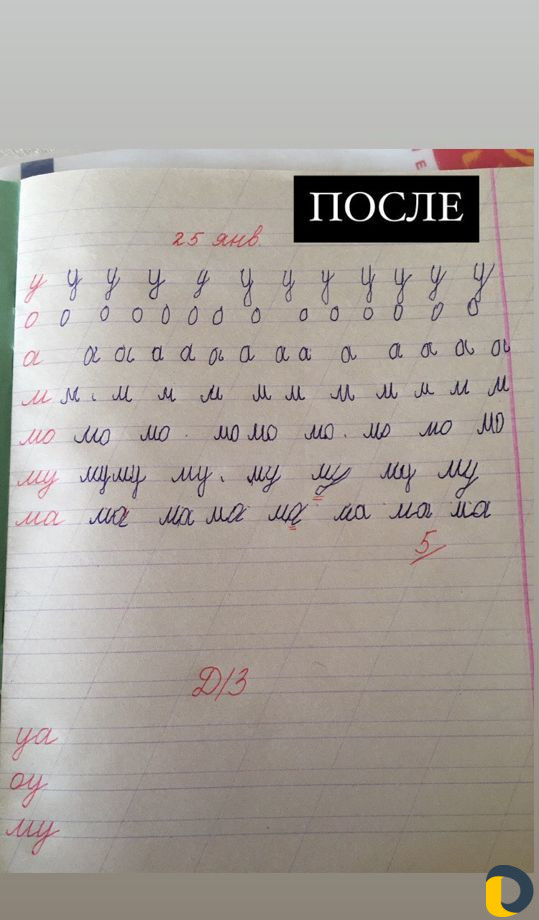 ПОСЛЕ
25 янв.
у у у у у у у у у у у у
о о о о о о о о о о о о о о
а а а а а а а а а а а а а а
м м. м м м м м м м м м м
мо мо мо. мо мо мо. мо мо мо
му муму му. му му му му
ма ма ма ма ма ма ма ма
5
Д/З
уа
оу
му